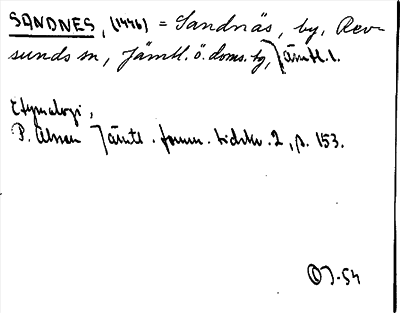 SANDNES, (1446) = Sandnäs, by, Rev-
sunds sn, Jämtl. ö. doms. tg, Jämtl. l.
Etymologi,
P. Olsson Jämtl. fornm. tidskr. 2, s. 153.
OJ-54